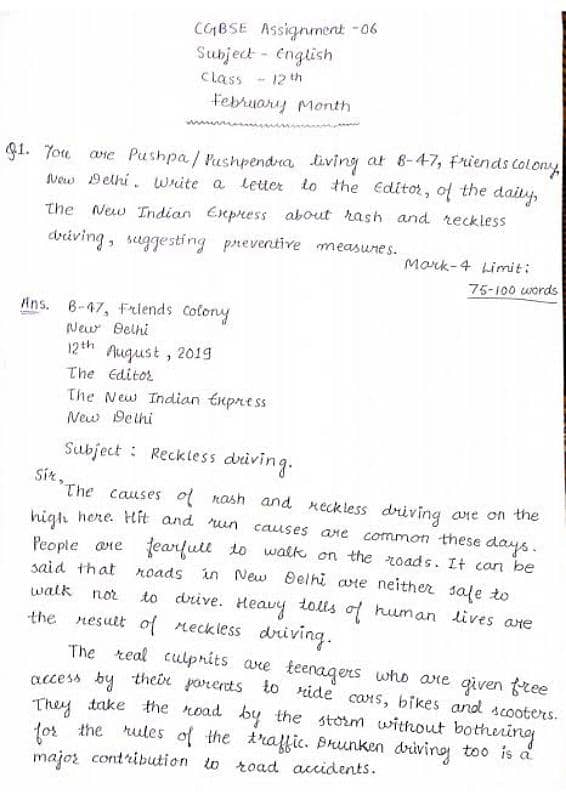 CGBSE Assignment -06
Subject - English
Class - 12th
February Month
Q1. You are Pushpa/Pushpendra living at B-47, Friends Colony,
New Delhi. Write a letter to the Editor, of the daily,
The New Indian Express about rash and reckless
driving, suggesting preventive measures.
Mark-4 Limit:
75-100 words
Ans. B-47, Friends Colony
New Delhi
12th August, 2019
The Editor
The New Indian Express
New Delhi
Subject : Reckless driving.
Sir,
The causes of rash and reckless driving are on the
high here. Hit and run causes are common these days.
People are fearfull to walk on the roads. It can be
said that roads in New Delhi are neither safe to
walk nor to drive. Heavy tolls of human lives are
the result of reckless driving.
The real culprits are teenagers who are given free
access by their parents to ride cars, bikes and scooters.
They take the road by the storm without bothering
for the rules of the traffic. Drunken driving too is a
major contribution to road accidents.